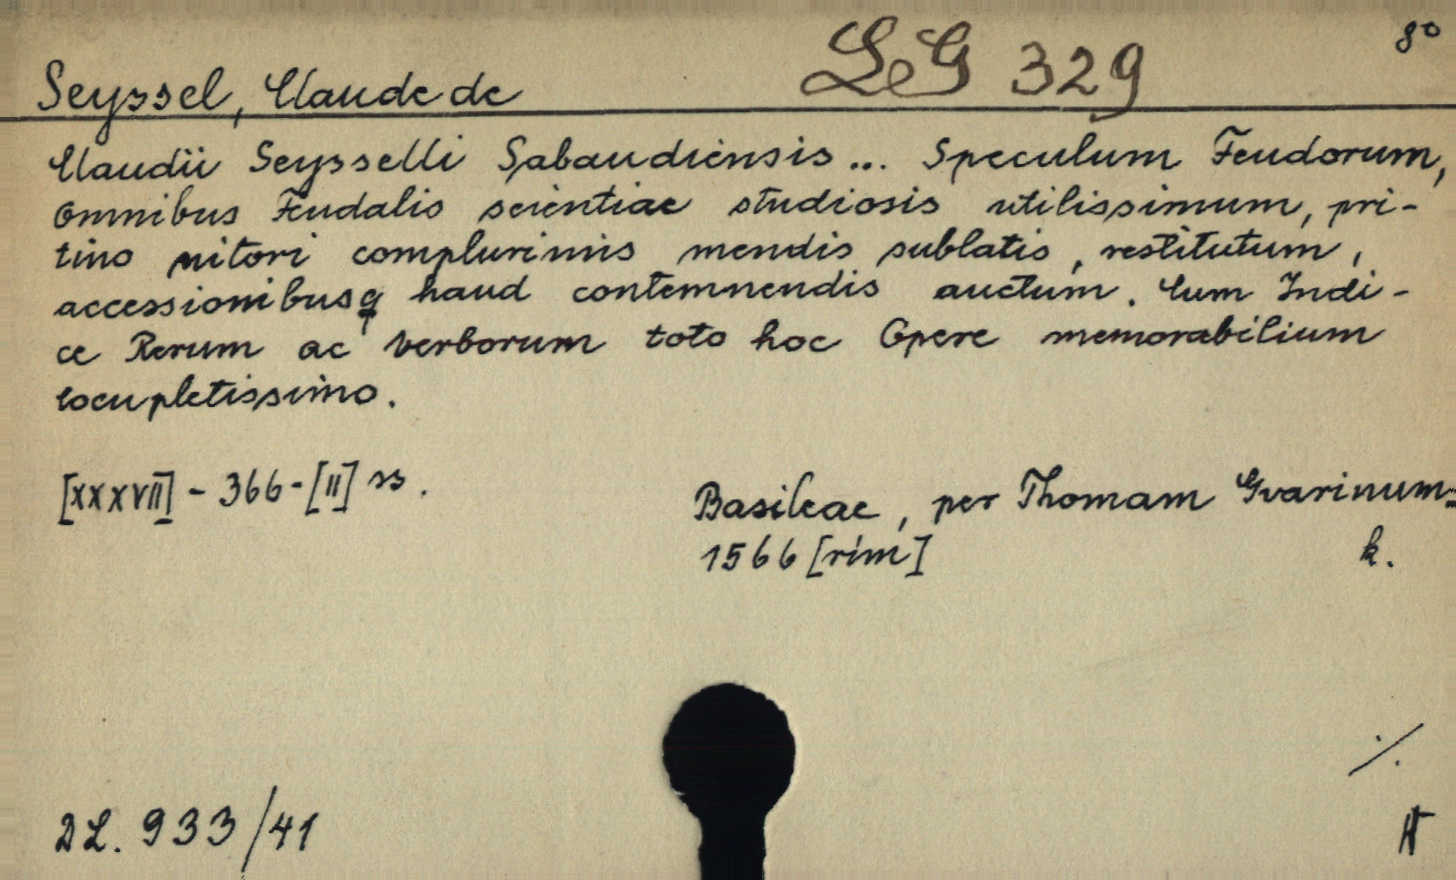 LeG 329
8°
Seyssel, Claude de
Claudii Seysselli Sabaudiensis ... Speculum Feudorum,
omnibus Feudalis scientiae studiosis utilissimum, pri-
tino nitori complurimis mendis sublatis, restitutum,
accessionibusq haud contemnendis auctum. Cum Indi-
ce Rerum ac verborum toto hoc Opere memorabilium
locupletissimo.
[XXXVII] - 366 - [II] ss.
Basileae, per Thomam Gvarinum=
1566 [rim] k.
./.
DL. 933/41
H